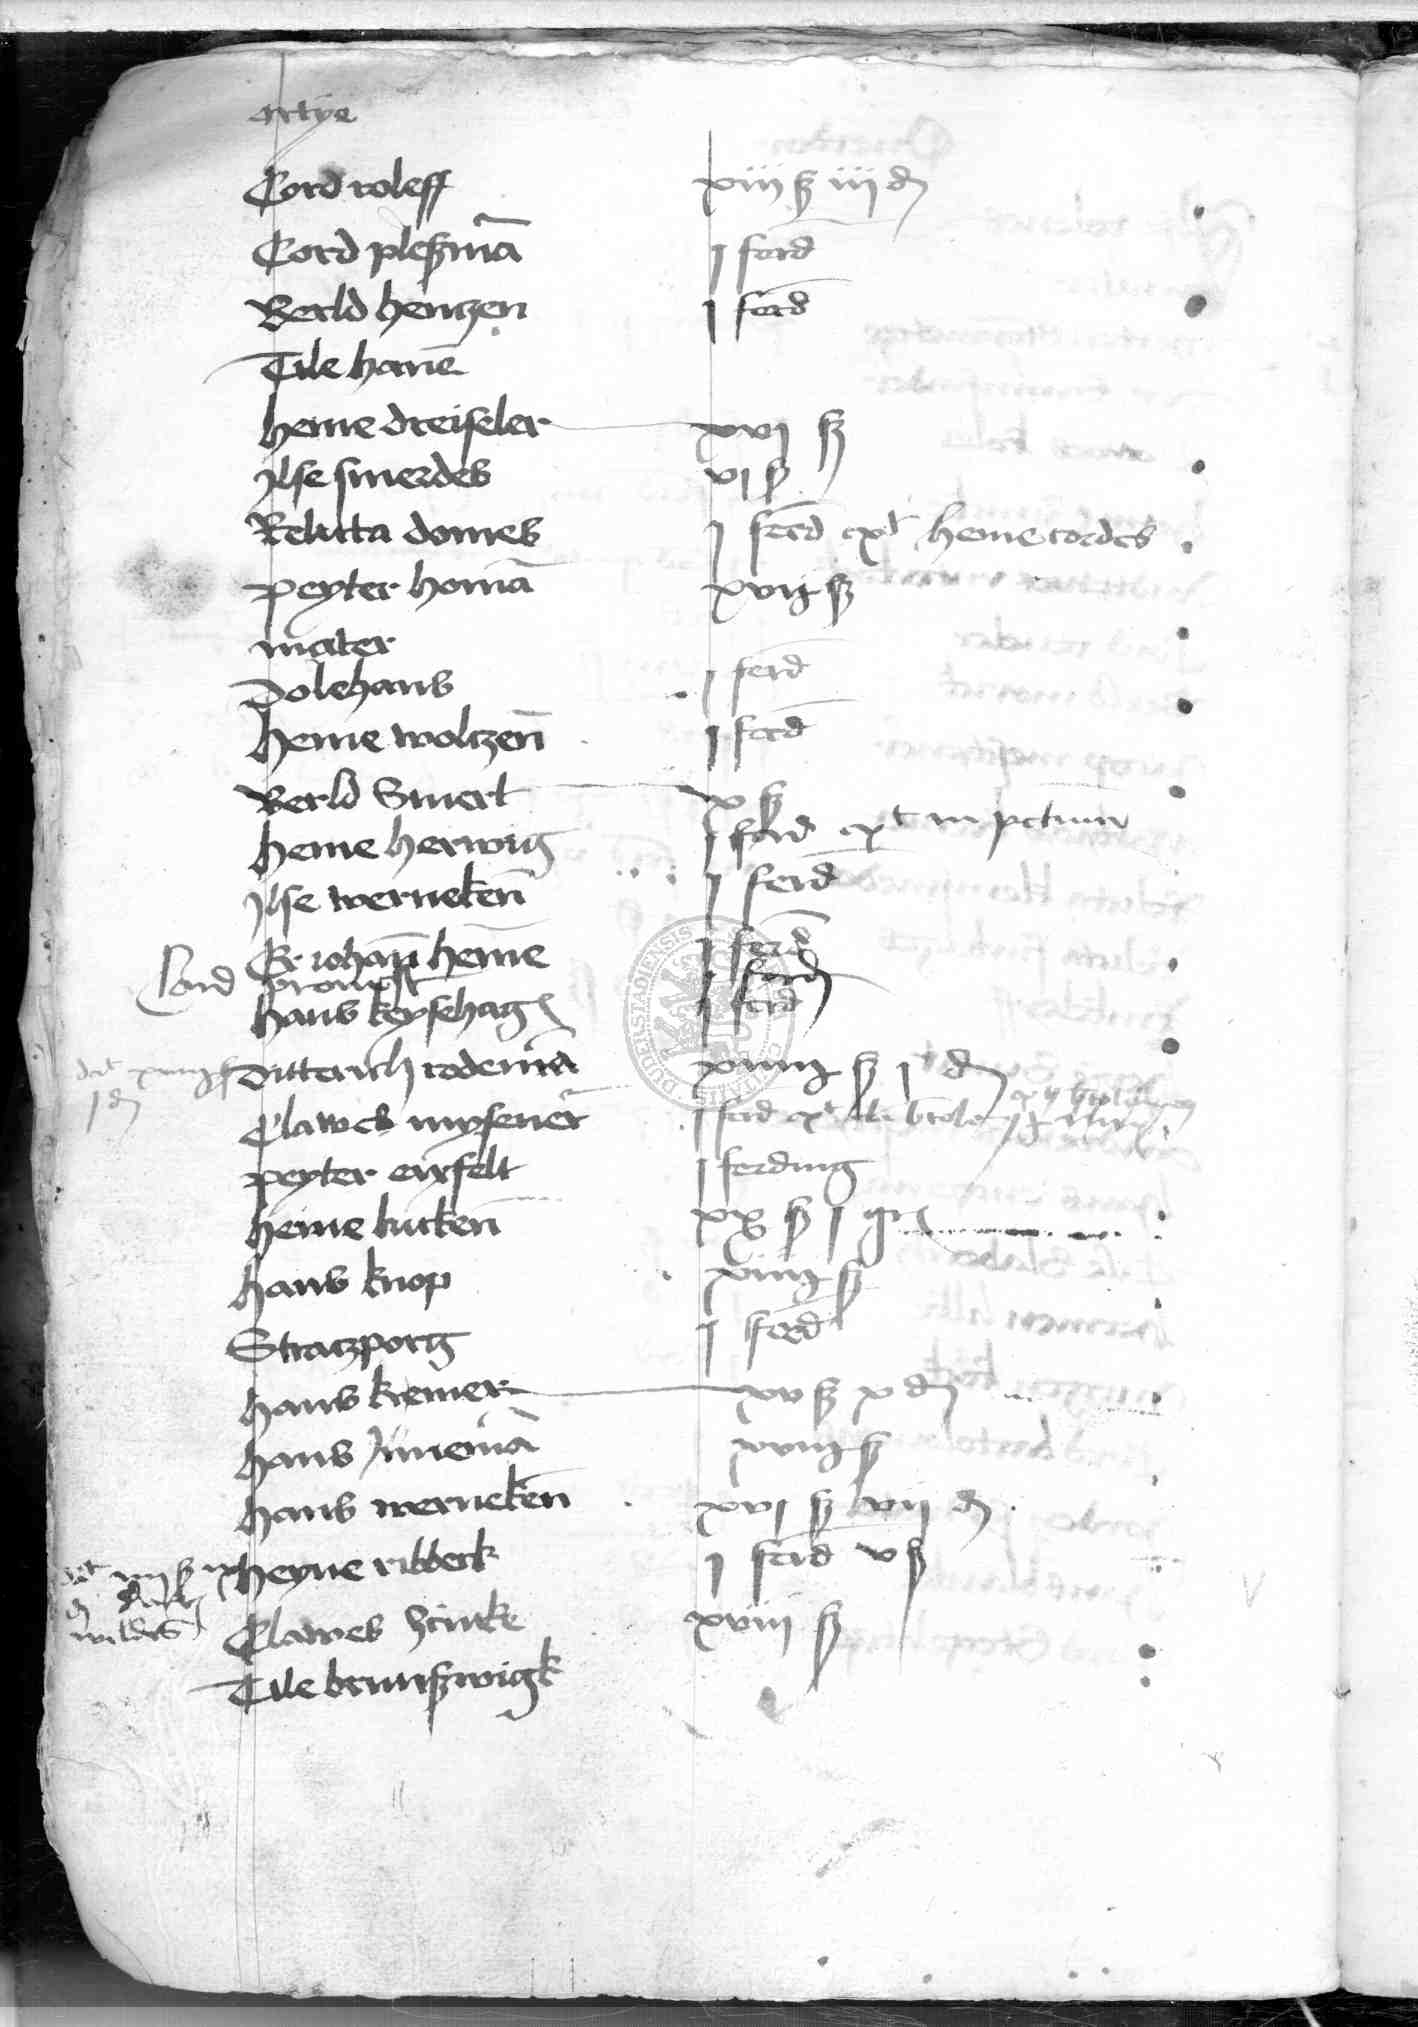 Cord roleff xiiii ß iii d
Cord pleßmā j ferd
Berld hentzen j ferd
Tile hanē
heine dreiseler xvj ß
Ilse smerdes vj ß
Relicta domes j ferd ext heine cordes
peyter homā xvij ß
mater
Dolehans j ferd
heine woltzen̄ j ferd
Berld Smert x ß
heine herwig j ferd ext in
Ilse werneken̄ j ferd
Er iohan̄ heine j ferd
Land provest j ferd
hans keysehag j ferd
Ditterich rodemā xiiij ß j d
Clawes mysener j ferd ext
peyter erxfelt j ferding
heine lutken̄ xx ß j gr
hans knop xiiij ß
Stratzporg j ferd
hans kremer xv ß x d
hans Junemā xviij ß
hans werneken̄ xvj ß vii d
heyne ribbeck j ferd v ß
Clawes Hinke xviii ß
Tile brunßwigk